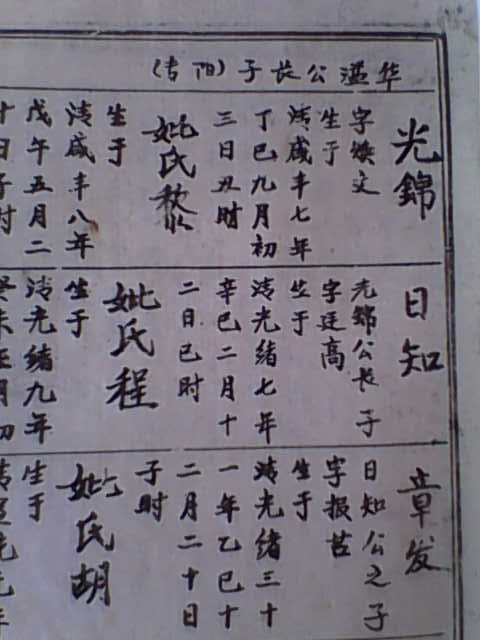 华溫公长子（阳吉）
光錦
字焕文
生于
清咸丰七年
丁巳九月初
三日丑时
妣氏黎
生于
清咸丰八年
戊午五月二
十日子时
日知
光錦公长子
字廷高
生于
清光绪七年
辛巳二月十
二日巳时
妣氏程
生于
清光绪九年
癸未正月初
章发
日知公之子
字报苔
生于
清光绪三十
一年乙巳十
二月二十日
子时
妣氏胡
生于